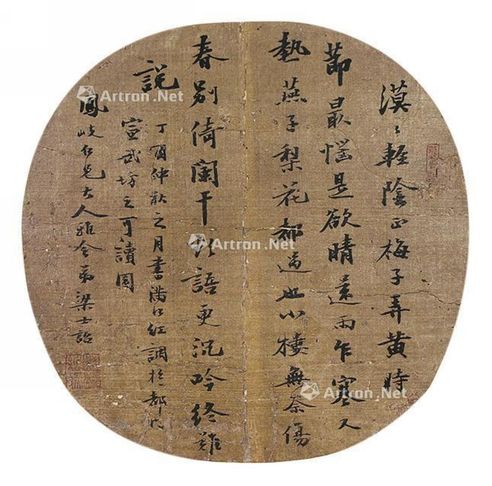 漠〻輕陰正梅子弄黃時
節最惱是欲晴還雨乍寒又
熱燕子梨花都過也小樓無奈傷
春別倚闌干欲語更沉吟終難
說
丁酉仲秋之月書滿江紅調於都門
宣武坊之可讀園
鳳岐仁兄大人雅令弟梁士詒
Artron.Net
Artron.Net
Artron.Net
Artron.Net
Artron.Net